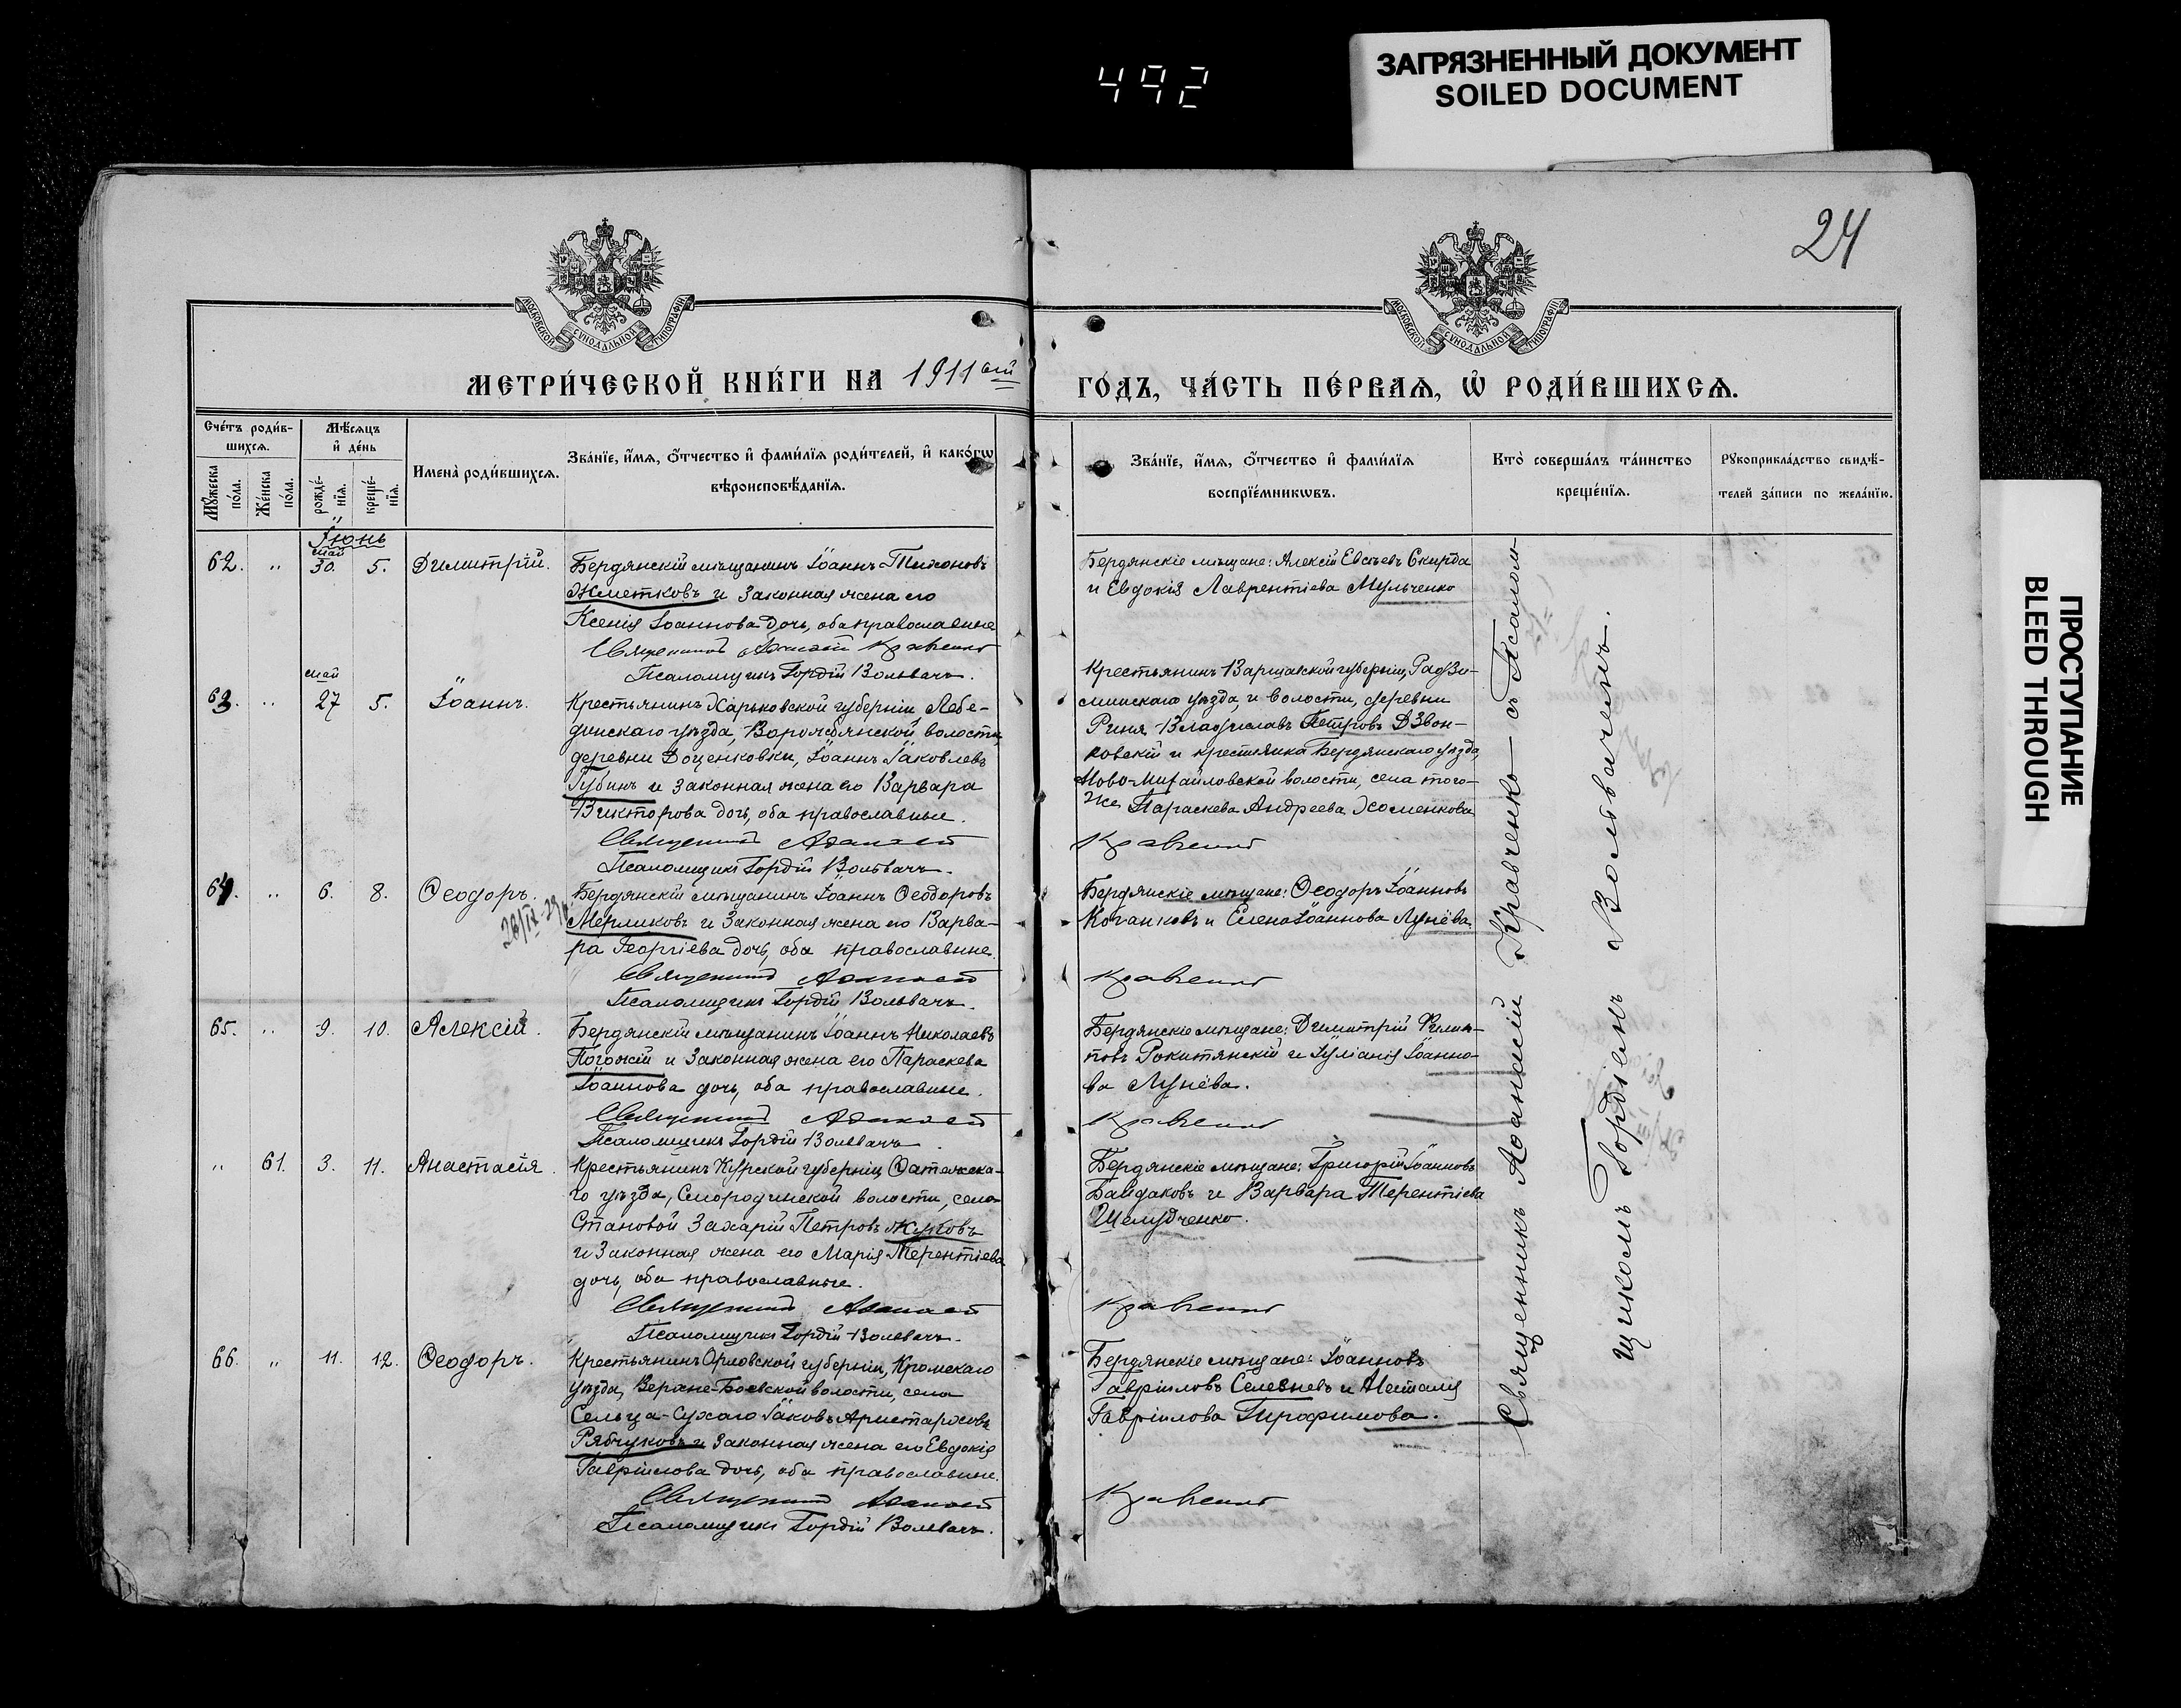 492
ЗАГРЯЗНЕННЫЙ ДОКУМЕНТ
SOILED DOCUMENT
ПРОСТУПАНИЕ
BLEED THROUGH
24
МОСКОВСКОЙ СѴНОДАЛЬНОЙ ТИПОГРАФІИ
МОСКОВСКОЙ СѴНОДАЛЬНОЙ ТИПОГРАФІИ
МЕТРИ́ЧЕСКОЙ КНИ́ГИ НА 1911 ый
ГО́ДЪ, ЧА́СТЬ ПЕ́РВАѦ, Ѡ РОДИ́ВШИХСѦ.
Сче́тъ роди́в-
шихсѧ.
Мꙋ́жеска
по́ла.
Же́нска
по́ла.
Мѣ́сѧцъ
и҆ де́нь
рожде́-
нїѧ.
креще́-
нїѧ.
Имена̀ роди́вшихсѧ.
Зва́нїе, и҆́мѧ, о҆́тчество и҆ фами́лїѧ роди́телей, и҆ како́гѡ
вѣроисповѣ́данїѧ.
Зва́нїе, и҆́мѧ, о҆́тчество и҆ фами́лїѧ
воспрїе́мникѡвъ.
Кто̀ соверша́лъ та́инство
креще́нїѧ.
Рꙋкоприкла́дство свидѣ́-
телей за́писи по жела́нїю.
Іюнь
62. " май 30. 5. Димитрій.
Бердянскій мѣщанинъ Іоаннъ Тихоновъ
Жметковъ и законная жена его
Ксенія Іоаннова дочь, оба православные
Священникъ Аѳанасій Кравченко
Псаломщикъ Гордій Вольвачъ.
Бердянскіе мѣщане: Алексій Евсѣевъ Скирда
и Евдокія Лаврентіева Мульченко
63. " май 27 5. Іоаннъ.
Крестьянинъ Харьковской губерніи Лебе-
динскаго уѣзда, Ворожбянской волости,
деревни Доценковки, Іоаннъ Іаковлевъ
Губинъ и законная жена его Варвара
Викторова дочь, оба православные.
Священникъ Аѳанасій
Псаломщикъ Гордій Вольвачъ.
Крестьянинъ Варшавской губерніи, Радзи-
минскаго уѣзда и волости, деревни
Рыня Владиславъ Петровъ Дзвон-
ковскій и крестьянка Бердянскаго уѣзда,
Ново-Михайловской волости, села того-
же Параскева Андреева Хоменкова
Кравченко
64. " 6. 8. Ѳеодоръ.
Бердянскій мѣщанинъ Іоаннъ Ѳеодоровъ
Мерликовъ и законная жена его Варва-
ра Георгіева дочь, оба православные.
Священникъ Аѳанасій
Псаломщикъ Гордій Вольвачъ.
Бердянскіе мѣщане: Ѳеодоръ Іоанновъ
Коганковъ и Елена Іоаннова Лунёва.
Кравченко
65. " 9. 10. Алексій.
Бердянскій мѣщанинъ Іоаннъ Николаевъ
Погожій и законная жена его Параскева
Іоаннова дочь, оба православные.
Священникъ Аѳанасій
Псаломщикъ Гордій Вольвачъ
Бердянскіе мѣщане: Димитрій Филип-
повъ Рокитянскій и Іуліанія Іоанно-
ва Лунёва.
Кравченко
" 61. 3. 11. Анастасія.
Крестьянинъ Курской губерніи, Фатежска-
го уѣзда, Смородинской волости, села
Становой Захарій Петровъ Жуковъ
и законная жена его Марія Терентіева
дочь, оба православные.
Священникъ Аѳанасій
Псаломщикъ Гордій Вольвачъ.
Бердянскіе мѣщане: Григорій Іоанновъ
Байдаковъ и Варвара Терентіева
Шелудченко.
Кравченко
66. " 11. 12. Ѳеодоръ.
Крестьянинъ Орловской губерніи, Кромскаго
уѣзда, Верхне-Боевской волости, села
Сельца-Сухаго Іаковъ Аристарховъ
Рябчуковъ и законная жена его Евдокія
Гавріилова дочь, оба православные.
Священникъ Аѳанасій
Псаломщикъ Гордій Вольвачъ.
Бердянскіе мѣщане: Іоанновъ
Гавріиловъ Селезневъ и Наталія
Гавріилова Трофимова.
Кравченко
Священникъ Аѳанасій Кравченко съ Псалом-
щикомъ Гордіемъ Вольвачемъ.